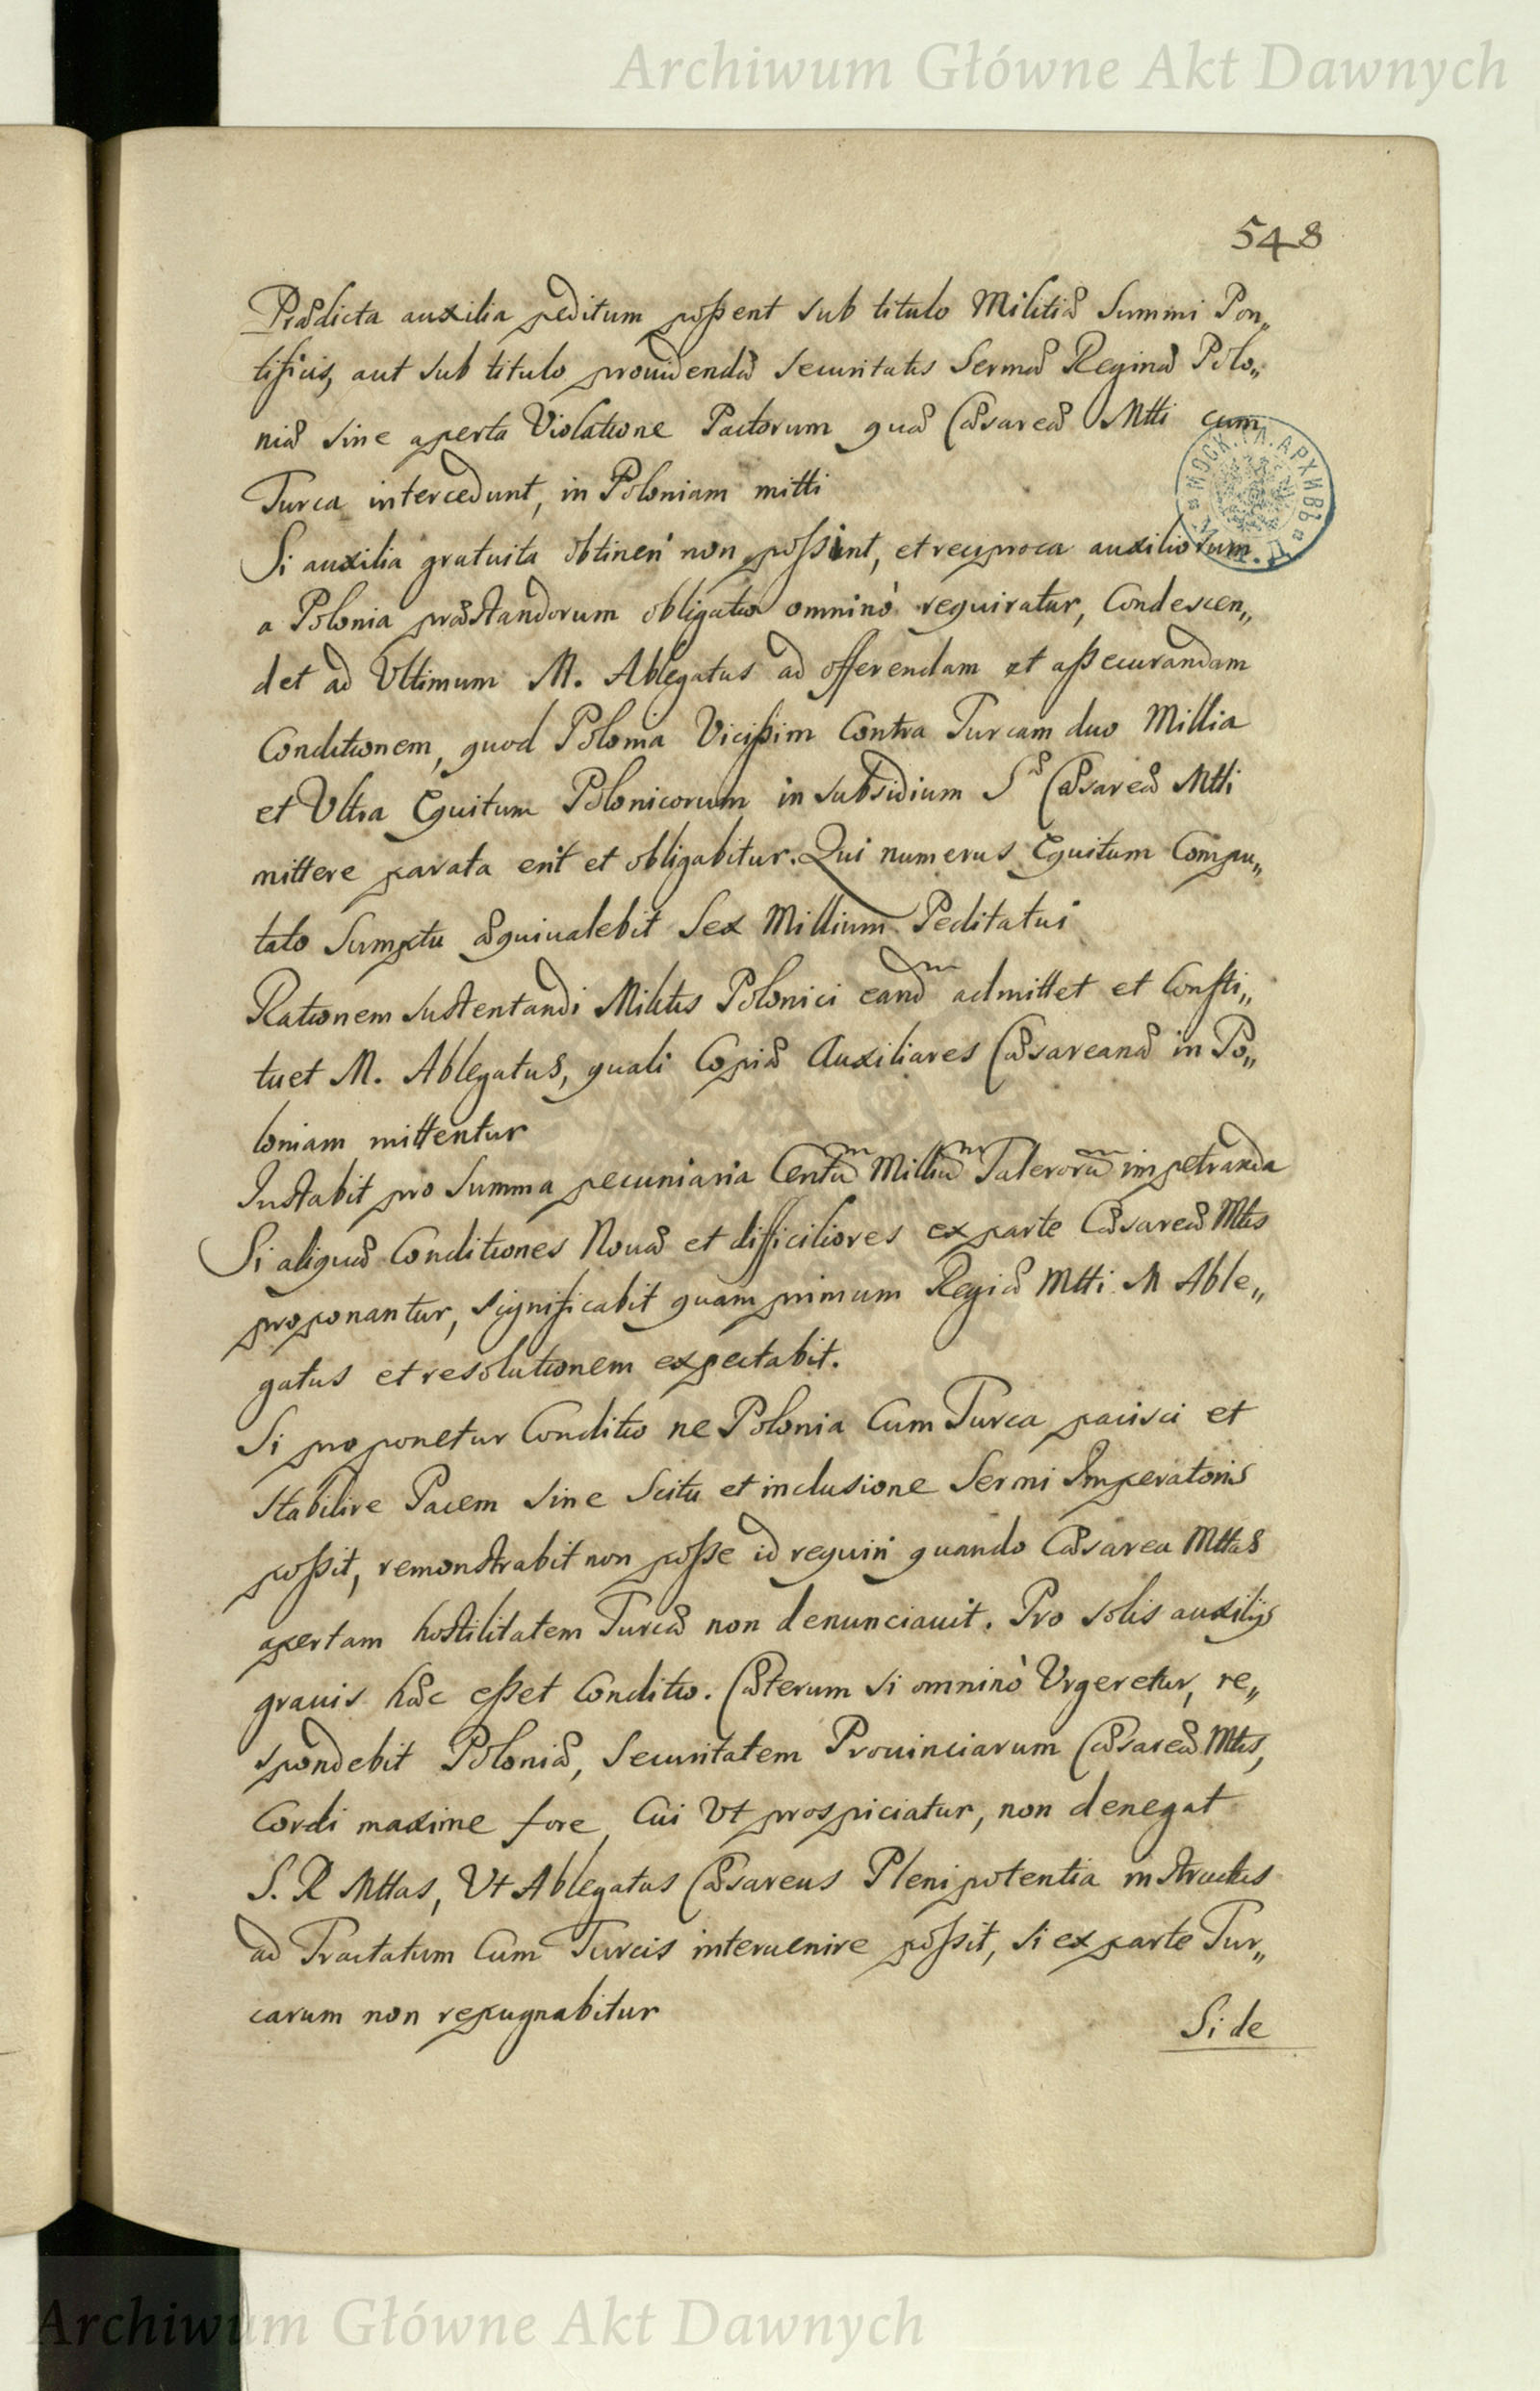 Archiwum Główne Akt Dawnych
548
Prædicta auxilia peditum poßent sub titulo Militiæ Summi Pon„
tificis, aut sub titulo prouidendæ securitatis Sermæ Reginæ Polo„
niæ sine aperta Violatione Pactorum quæ Cæsareæ Mtti cum
Turca intercedunt, in Poloniam mitti
Si auxilia gratuita obtineri non possint, et reciproca auxiliorum
a Polonia præstandorum obligatio omninò requiratur, Condescen„
det ad Ultimum M. Ablegatus ad offerendam et aßecurandam
Conditionem, quod Polonia Vicißim Contra Turcam duo Millia
et Ultra Equitum Polonicorum in subsidium Sæ Cæsareæ Mtti
mittere parata erit et obligabitur. Qui numerus Equitum Compu„
tato Sumptu æquiualebit Sex Millium Peditatui
Rationem sustentandi Militis Polonici eandm admittet et Consti„
tuet M. Ablegatus, quali Copiæ Auxiliares Cæsareanæ in Po„
loniam mittentur
Instabit pro Summa pecuniaria Centum Millium Talerorum impetranda
Si aliquæ Conditiones Nouæ et difficiliores ex parte Cæsareæ Mtis
proponantur, significabit quam primum Regiæ Mtti M Able„
gatus et resolutionem expectabit.
Si proponetur Conditio ne Polonia Cum Turca pacisci et
Stabilire Pacem sine Scitu et inclusione Sermi Imperatoris
poßit, remonstrabit non poße id requiri quando Cæsarea Mttas
apertam hostilitatem Turcæ non denunciauit. Pro solis auxilijs
grauis hæc eßet Conditio. Cæterum si omninò Urgeretur, re„
spondebit Poloniæ, Securitatem Prouinciarum Cæsareæ Mtis,
Cordi maxime fore, Cui Ut prospiciatur, non denegat
S. R Mttas, Ut Ablegatus Cæsareus Plenipotentia instructus
ad Tractatum Cum Turcis interuenire poßit, si ex parte Tur„
carum non repugnabitur
Si de
Archiwum Główne Akt Dawnych